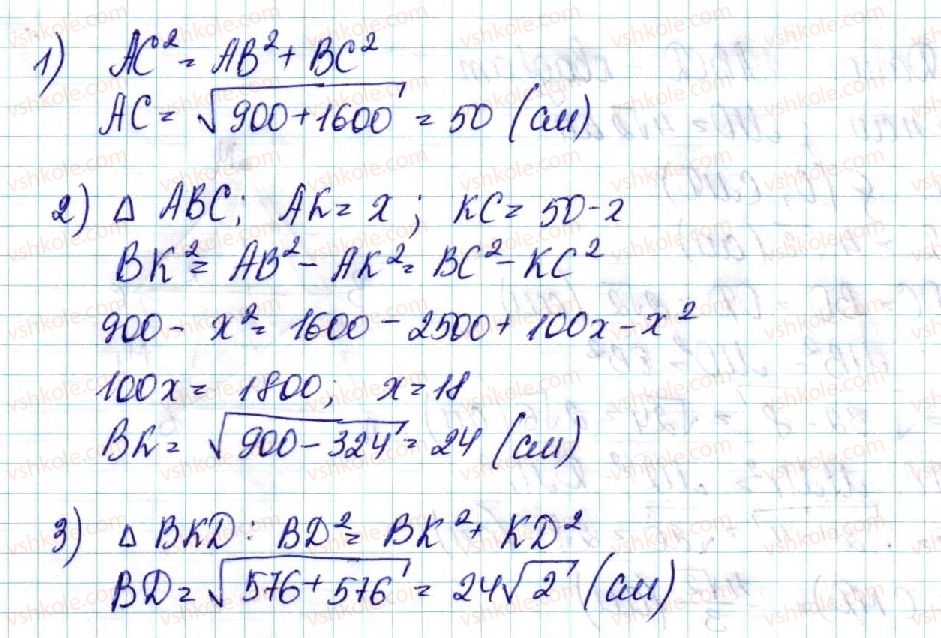 1) AC² = AB² + BC²
AC = √(900+1600) = 50 (см)
2) Δ ABC; AK = x; KC = 50-x
BK² = AB² - AK² = BC² - KC²
900 - x² = 1600 - 2500 + 100x - x²
100x = 1800; x = 18
BK = √(900-324) = 24 (см)
3) Δ BKD: BD² = BK² + KD²
BD = √(576+576) = 24√2 (см)
vshkole.com